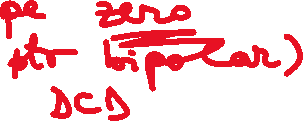 pe zero
ptr bipolar)
DCD